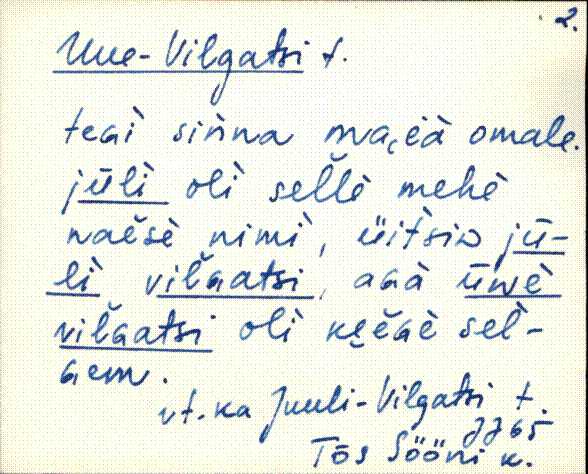 2.
Uue-Vilgatsi t.
teGì siǹna maɛ̀à omale.
jūlì olì sellè mehè
naĕsè nimì, üitsìv jū-
lì vilGatsi, aGà ūwè
vilGatsi olì kęĕGè sel-
Gem.
vt. ka Juuli-Vilgatsi t.
JJ 65
Tõs Sööni k.